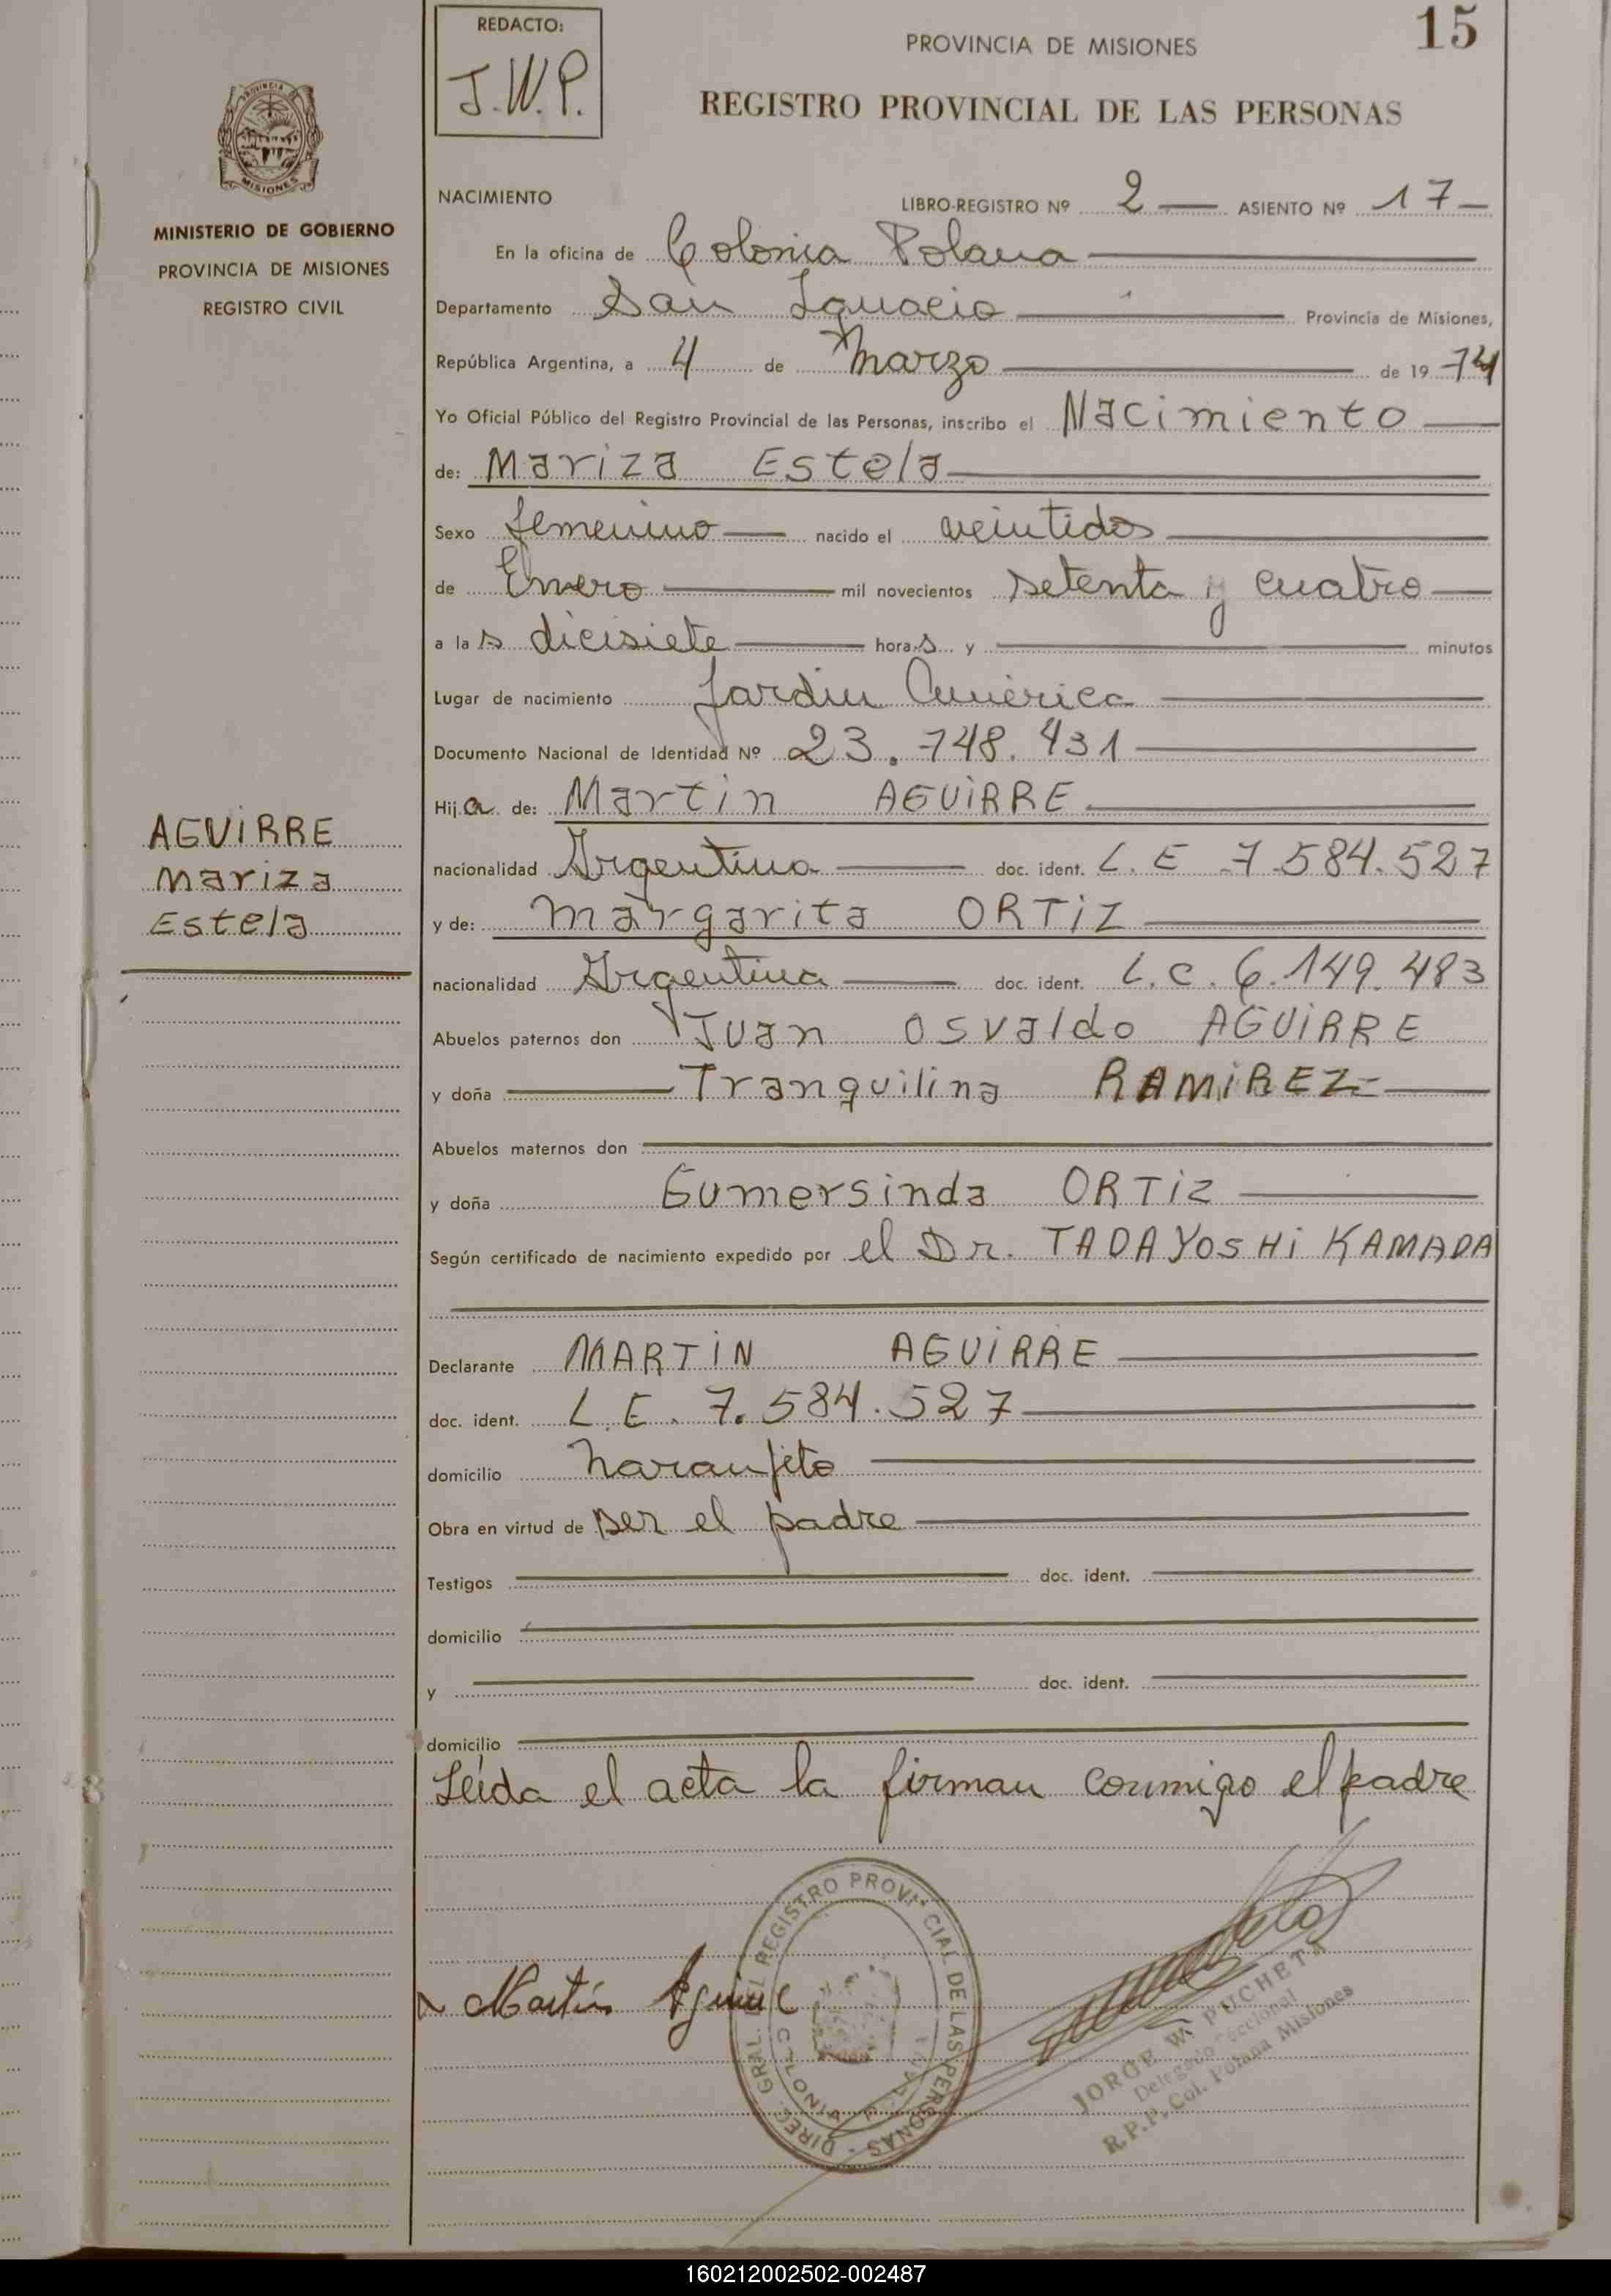 REDACTO:
J.W.P.
15
PROVINCIA DE MISIONES
REGISTRO PROVINCIAL DE LAS PERSONAS
PROVINCIA DE
MISIONES
MINISTERIO DE GOBIERNO
PROVINCIA DE MISIONES
REGISTRO CIVIL
AGUIRRE
Mariza
Estela
NACIMIENTO LIBRO-REGISTRO Nº 2 ASIENTO Nº 17
En la oficina de Colonia Polana
Departamento San Ignacio Provincia de Misiones,
República Argentina, a 4 de Marzo de 1974
Yo Oficial Público del Registro Provincial de las Personas, inscribo el Nacimiento
de: Mariza Estela
Sexo femenino nacido el veintidos
de Enero mil novecientos setenta y cuatro
a las dicisiete horas y minutos
Lugar de nacimiento Jardin América
Documento Nacional de Identidad Nº 23.748.431
Hija de: Martin AGUIRRE
nacionalidad Argentino doc. ident. L.E 7.584.527
y de: Margarita ORTIZ
nacionalidad Argentina doc. ident. L.C. 6.149.483
Abuelos paternos don Juan Osvaldo AGUIRRE
y doña Tranquilina RAMIREZ
Abuelos maternos don
y doña Gumersinda ORTIZ
Según certificado de nacimiento expedido por el Dr. TADAYOSHI KAMADA
Declarante MARTIN AGUIRRE
doc. ident. L.E. 7.584.527
domicilio Naranjito
Obra en virtud de ser el padre
Testigos doc. ident.
domicilio
y doc. ident.
domicilio
Leída el acta la firman conmigo el padre
Martín Aguirre
DIREC. GRAL. DEL REGISTRO PROVINCIAL DE LAS PERSONAS
COLONIA POLANA
JORGE W. PUCHETA
Delegado Seccional
R.P.P. Col. Polana Misiones
160212002502-002487